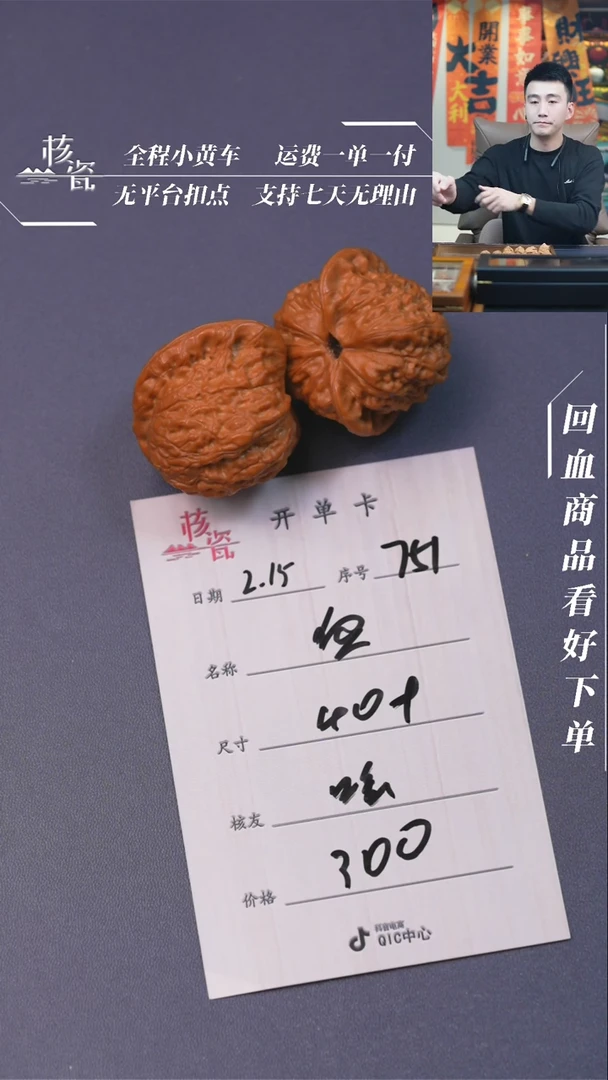 核瓷
全程小黄车 运费一单一付
无平台扣点 支持七天无理由
開業大吉
大利
事事如
财
旺
回血商品看好下单
核瓷
开单卡
日期 2.15 序号 751
名称
尺寸 40+
核友
价格 300
抖音电商
QIC中心